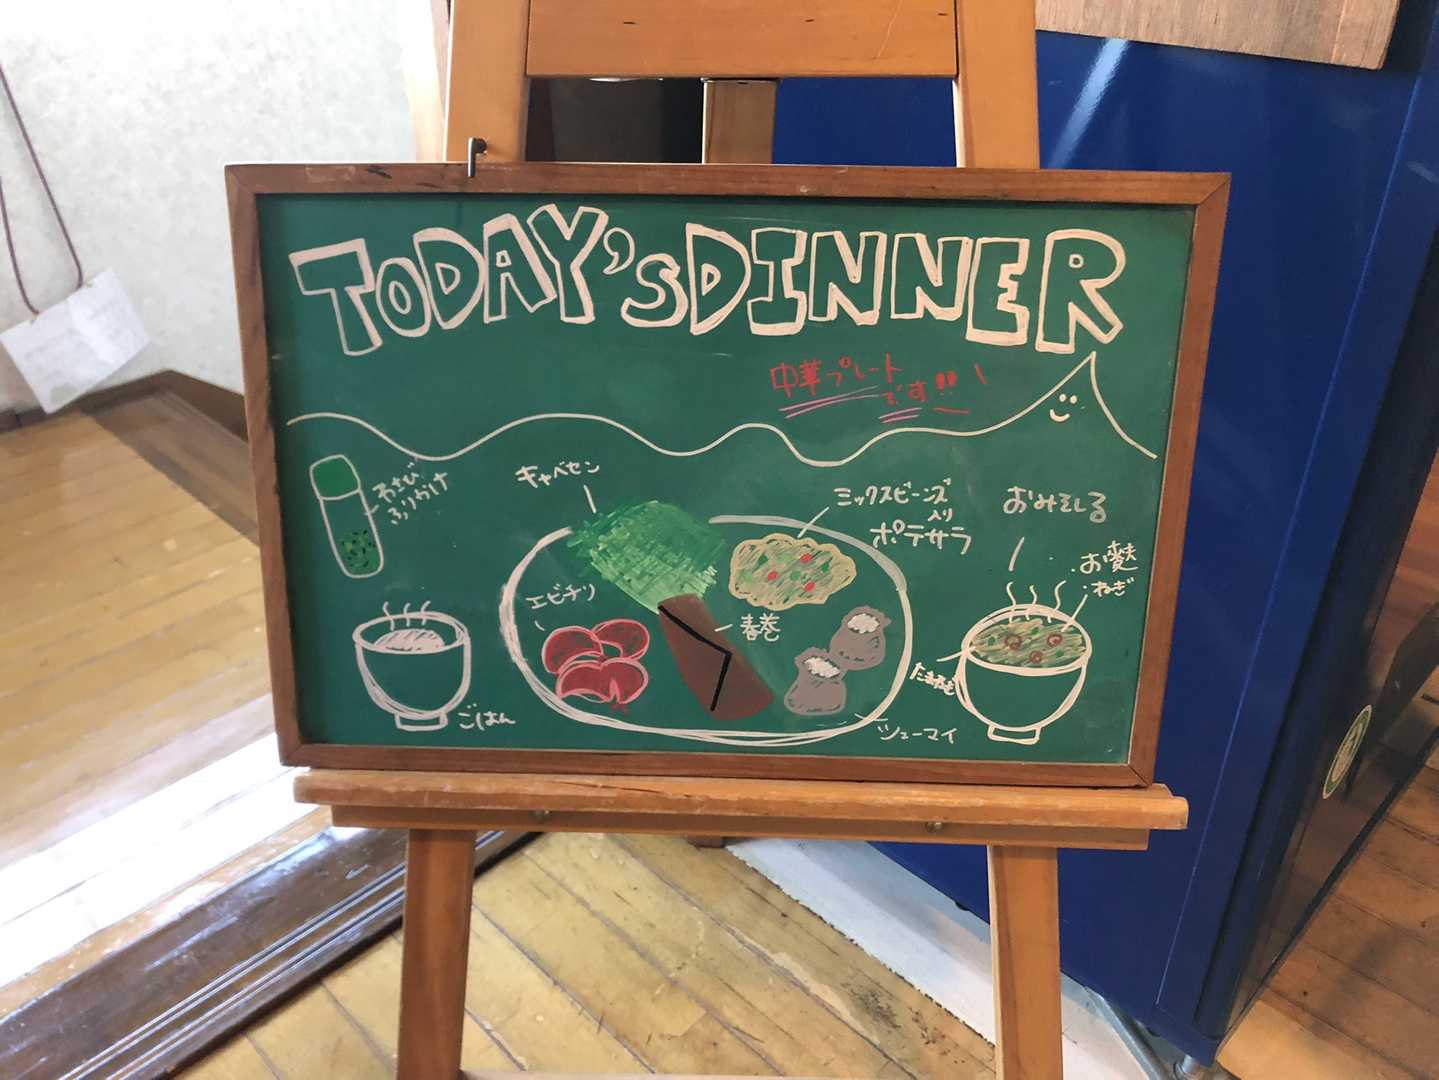 TODAY'S DINNER
中華プレート
です!!
わさび
ふりかけ
キャベセン
ミックスビーンズ
入り
ポテサラ
おみそしる
お麩
ねぎ
エビチリ
春巻
たまねぎ
ごはん
シューマイ